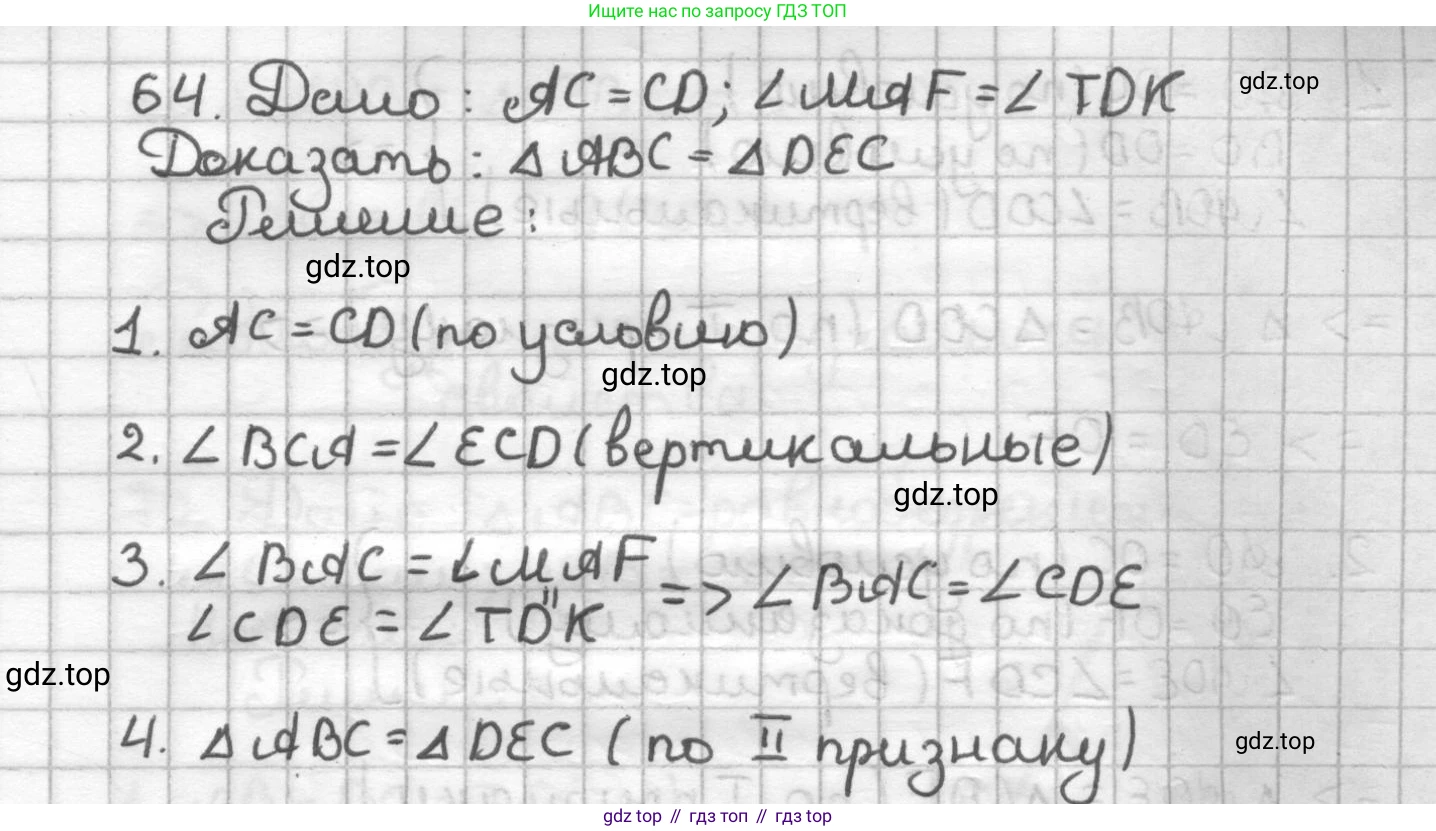 Ищите нас по запросу ГДЗ ТОП
64. Дано: AC = CD; ∠MAF = ∠TDK
gdz.top
Доказать: Δ ABC = Δ DEC
Решение:
gdz.top
1. AC = CD (по условию)
gdz.top
2. ∠ BCA = ∠ ECD (вертикальные)
gdz.top
3. ∠ BAC = ∠ MAF
=> ∠ BAC = ∠ CDE
"
∠ CDE = ∠ TDK
gdz.top
4. Δ ABC = Δ DEC (по II признаку)
gdz.top
gdz top // гдз топ // гдз top